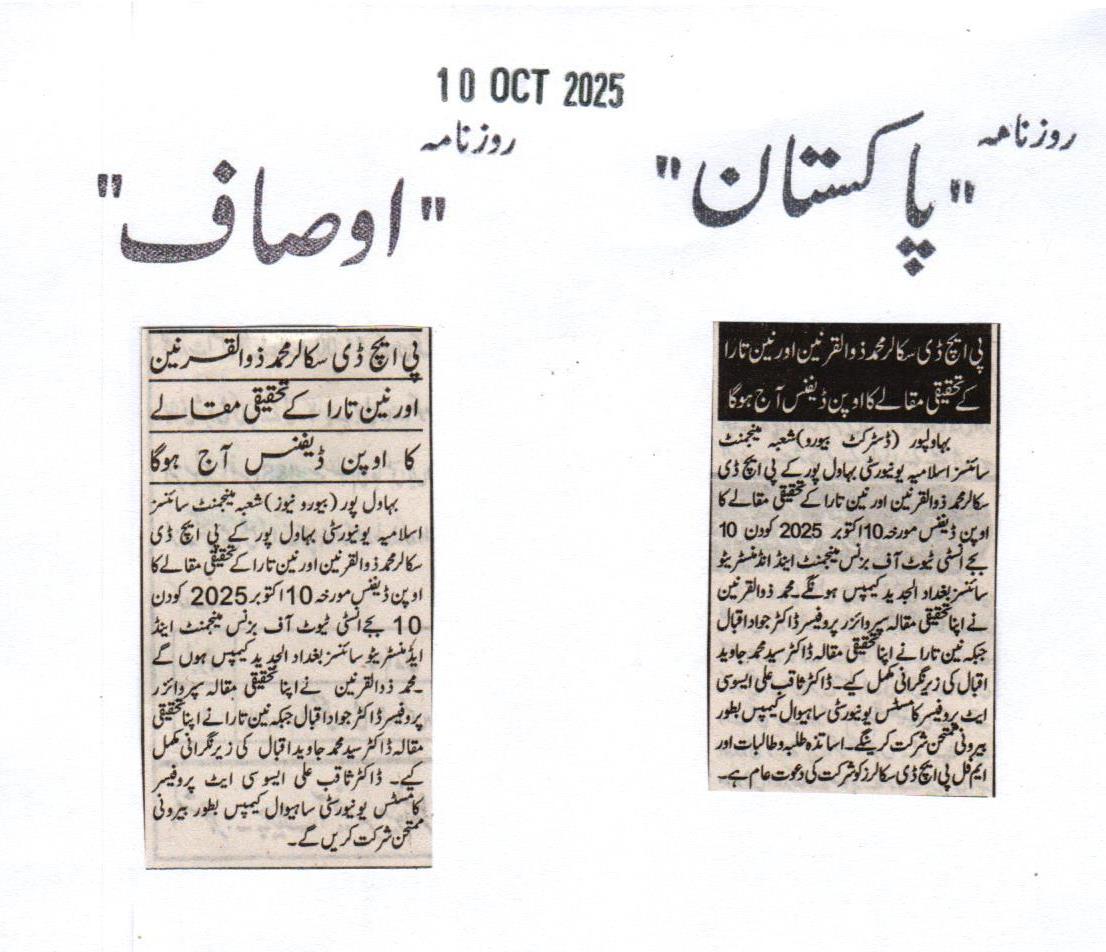 10 OCT 2025
روزنامہ
"پاکستان"
پی ایچ ڈی سکالر محمد ذوالقرنین اور نین تارا
کے تحقیقی مقالے کا اوپن ڈیفنس آج ہوگا
بہاولپور (ڈسٹرکٹ بیورو) شعبہ مینجمنٹ
سائنسز اسلامیہ یونیورسٹی بہاول پور کے پی ایچ ڈی
سکالر محمد ذوالقرنین اور نین تارا کے تحقیقی مقالے کا
اوپن ڈیفنس مورخہ 10 اکتوبر 2025 کو دن 10
بجے انسٹی ٹیوٹ آف بزنس مینجمنٹ اینڈ انڈمنسٹریٹو
سائنسز بغداد الجدید کیمپس ہونگے۔ محمد ذوالقرنین
نے اپنا تحقیقی مقالہ سپروائزر پروفیسر ڈاکٹر جواد اقبال
جبکہ نین تارا نے اپنا تحقیقی مقالہ ڈاکٹر سید محمد جاوید
اقبال کی زیر نگرانی مکمل کیے۔ ڈاکٹر ثاقب علی ایسوسی
ایٹ پروفیسر کامسٹس یونیورسٹی ساہیوال کیمپس بطور
بیرونی ممتحن شرکت کرینگے۔ اساتذہ طلبہ و طالبات اور
ایم فل پی ایچ ڈی سکالرز کو شرکت کی دعوت عام ہے۔
روزنامہ
"اوصاف"
پی ایچ ڈی سکالر محمد ذوالقرنین
اور نین تارا کے تحقیقی مقالے
کا اوپن ڈیفنس آج ہوگا
بہاول پور (بیورو نیوز) شعبہ مینجمنٹ سائنسز
اسلامیہ یونیورسٹی بہاول پور کے پی ایچ ڈی
سکالر محمد ذوالقرنین اور نین تارا کے تحقیقی مقالے کا
اوپن ڈیفنس مورخہ 10 اکتوبر 2025 کو دن
10 بجے انسٹی ٹیوٹ آف بزنس مینجمنٹ اینڈ
ایڈمنسٹریٹو سائنسز بغداد الجدید کیمپس ہوں گے
۔محمد ذوالقرنین نے اپنا تحقیقی مقالہ سپروائزر
پروفیسر ڈاکٹر جواد اقبال جبکہ نین تارا نے اپنا تحقیقی
مقالہ ڈاکٹر سید محمد جاوید اقبال کی زیر نگرانی مکمل
کیے۔ ڈاکٹر ثاقب علی ایسوسی ایٹ پروفیسر
کامسٹس یونیورسٹی ساہیوال کیمپس بطور بیرونی
ممتحن شرکت کریں گے۔